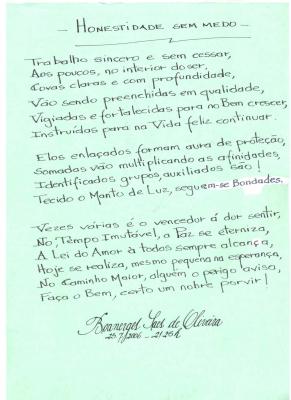 - Honestidade sem medo -
Trabalho sincero e sem cessar,
Aos poucos, no interior do ser,
Covas claras e com profundidade,
Vão sendo preenchidas em qualidade,
Vigiadas e fortalecidas para no Bem crescer,
Instruídas para na Vida feliz continuar.
Elos enlaçados formam aura de proteção,
Somados vão multiplicando as afinidades,
Identificados grupos, auxiliados são!
Tecido o Manto de Luz, seguem-se Bondades.
Vezes várias é o vencedor á dor sentir,
No, Tempo Imutável, a Paz se eterniza,
A Lei do Amor à todos sempre alcança,
Hoje se realiza, mesmo pequena na esperança,
No Caminho Maior, alguém o perigo avisa,
Faça o Bem, certo um nobre porvir!
Boanerges Saes de Oliveira
25/7/2006 - 21:25h